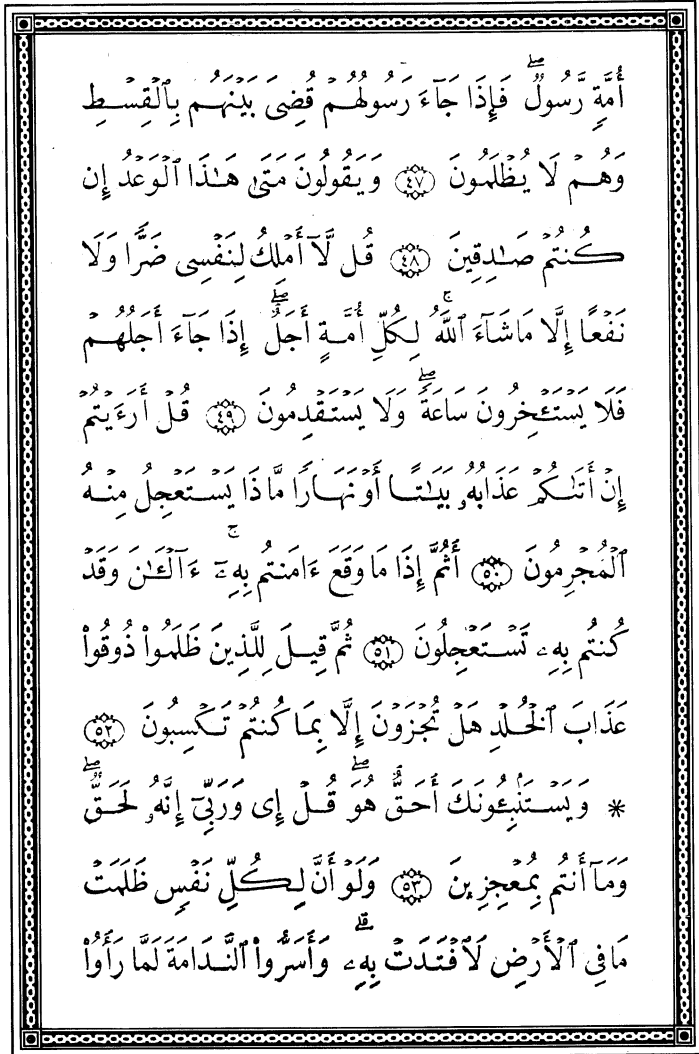 أُمَّةٍ رَّسُولٌ ۖ فَإِذَا جَآءَ رَسُولُهُمْ قُضِىَ بَيْنَهُم بِٱلْقِسْطِ
وَهُمْ لَا يُظْلَمُونَ ٤٧ وَيَقُولُونَ مَتَىٰ هَـٰذَا ٱلْوَعْدُ إِن
كُنتُمْ صَـٰدِقِينَ ٤٨ قُل لَّآ أَمْلِكُ لِنَفْسِى ضَرًّا وَلَا
نَفْعًا إِلَّا مَا شَآءَ ٱللَّهُ ۚ لِكُلِّ أُمَّةٍ أَجَلٌ ۖ إِذَا جَآءَ أَجَلُهُمْ
فَلَا يَسْتَـْٔخِرُونَ سَاعَةً ۖ وَلَا يَسْتَقْدِمُونَ ٤٩ قُلْ أَرَءَيْتُمْ
إِنْ أَتَىٰكُمْ عَذَابُهُۥ بَيَـٰتًا أَوْ نَهَارًا مَّاذَا يَسْتَعْجِلُ مِنْهُ
ٱلْمُجْرِمُونَ ٥٠ أَثُمَّ إِذَا مَا وَقَعَ ءَامَنتُم بِهِۦٓ ۚ ءَآلْـَٔـٰنَ وَقَدْ
كُنتُم بِهِۦ تَسْتَعْجِلُونَ ٥١ ثُمَّ قِيلَ لِلَّذِينَ ظَلَمُوا۟ ذُوقُوا۟
عَذَابَ ٱلْخُلْدِ هَلْ تُجْزَوْنَ إِلَّا بِمَا كُنتُمْ تَكْسِبُونَ ٥٢
* وَيَسْتَنۢبِـُٔونَكَ أَحَقٌّ هُوَ ۖ قُلْ إِى وَرَبِّىٓ إِنَّهُۥ لَحَقٌّ ۖ
وَمَآ أَنتُم بِمُعْجِزِينَ ٥٣ وَلَوْ أَنَّ لِكُلِّ نَفْسٍ ظَلَمَتْ
مَا فِى ٱلْأَرْضِ لَٱفْتَدَتْ بِهِۦ ۗ وَأَسَرُّوا۟ ٱلنَّدَامَةَ لَمَّا رَأَوُا۟